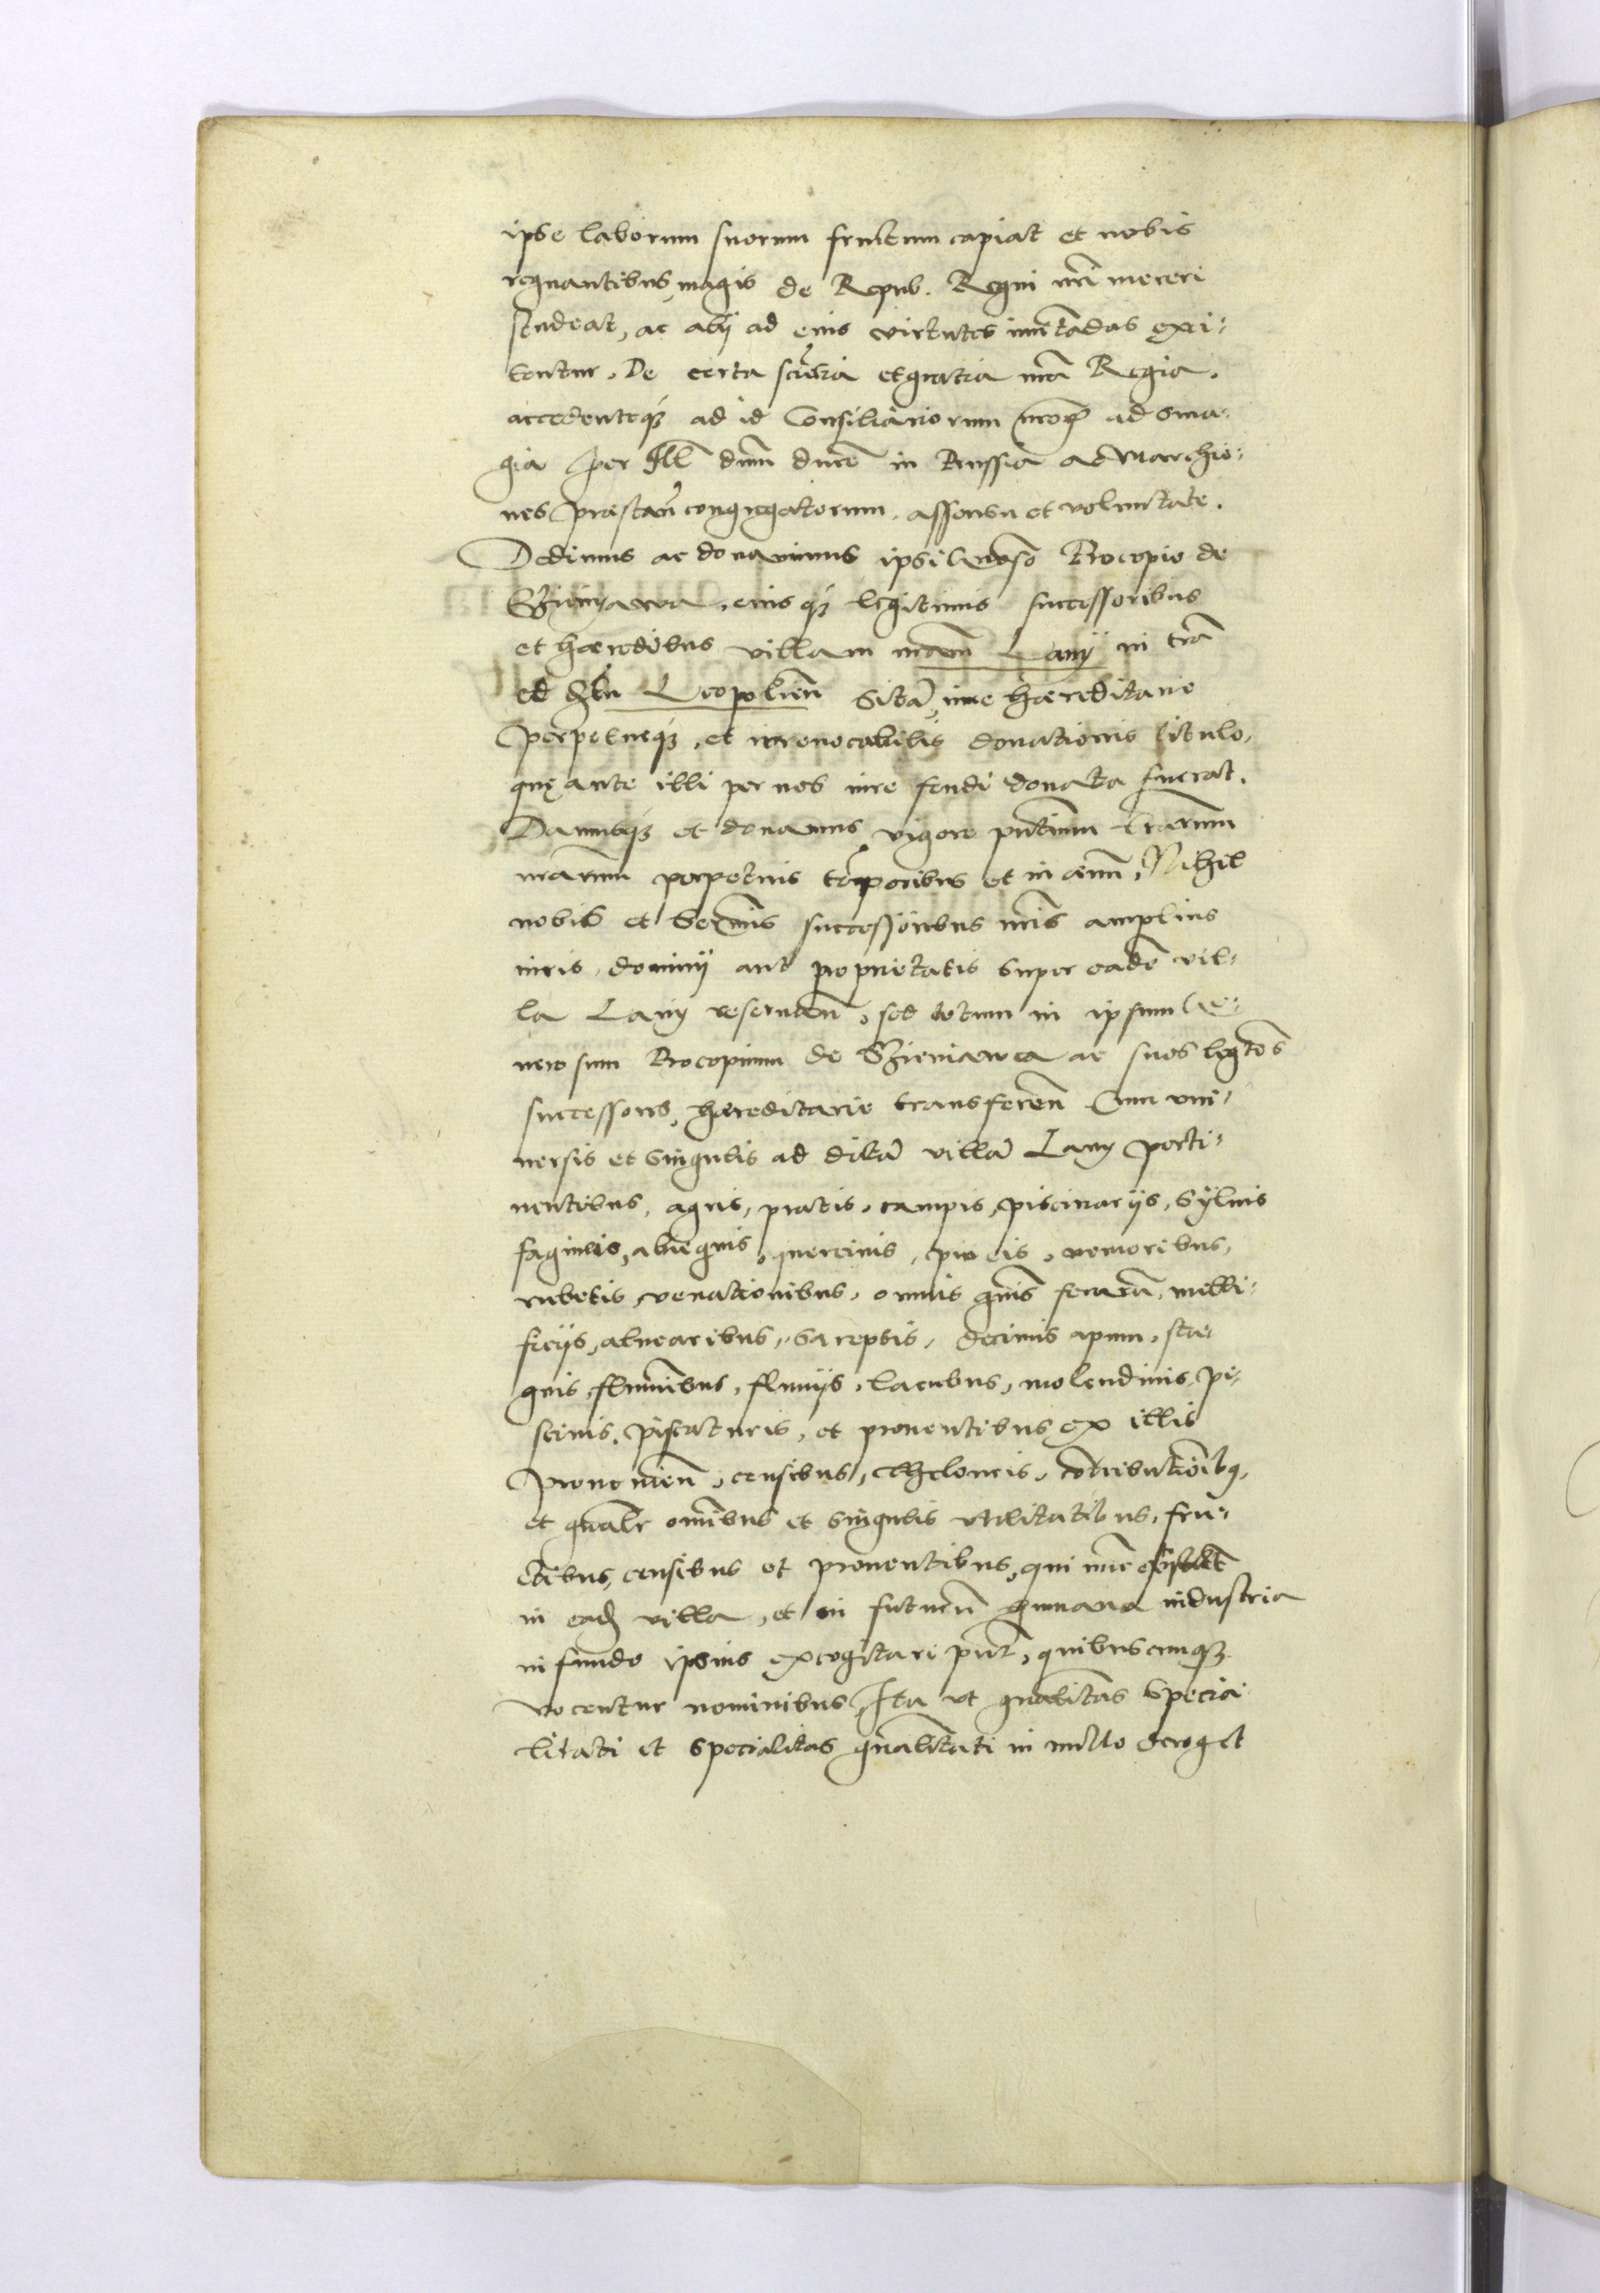 ipse laborum suorum fructum capiat et nobis
regnantibus, magis de Repub. Regni nrī mereri
studeat, ac alij ad eius virtutes imitādas exci-
tentur. De certa scīētia et gratia nrā Regia.
accedenteq3 ad id Consiliariorum nrorꝫ ad oma-
gia per Illm dnm ducē in Prussia ac Marchio-
nes præstan̄ congregatorum, assensu et voluntate.
Dedimus ac donavimus ipsi Gnoso Procopio de
Szienyawa, eius q3 legitimis successoribus
et hæredibus villam nrām Lany in trā
et dstu Leopolien̄ sitā, iure hæreditario
perpetueq3, et irrevocabilis donationis titulo,
quę ante illi per nos iure feudi donata fuerat.
Damusq3 et donamus vigore pn̄tium lrārum
nrārum perpetuis tēporibus et in ævum, Nihil
nobis et Sermis successoribus nrīs amplius
iuris, dominij aut proprietatis super eadē vil-
la Lany reservan̄, sed totum in ipsum Ge-
nerosum Procopium de Szieniawa ac suos legtōs
successores, hæreditarie transferen̄ Cum uni-
versis et singulis ad dictā villā Lany perti-
nentibus, agris, pratis, campis, piscinarijs, sylvis
fagineis, abiegnis, quercinis, piceis, nemoribus,
rubetis, venationibus, omnis gn̄is ferarū, melli-
ficijs, alvearibus, sareptis, decimis apum, sta-
gnis, fluminibus, fluvijs, lacubus, molendinis, pi-
scinis, piscaturis, et proventibus ex illis
provenien̄, censibus, theloneis, cōtributionibq,
et gn̄alr omnibus et singulis utilitatibus, fru-
ctibus, censibus et proventibus, qui nunc exstant
in eadꝫ villa, et in futurū humana industria
in fundo ipsius excogitari pn̄t, quibuscunq3
vocentur nominibus, Ita ut gn̄alitas specia
litati et specialitas gn̄alitati in nullo deroget